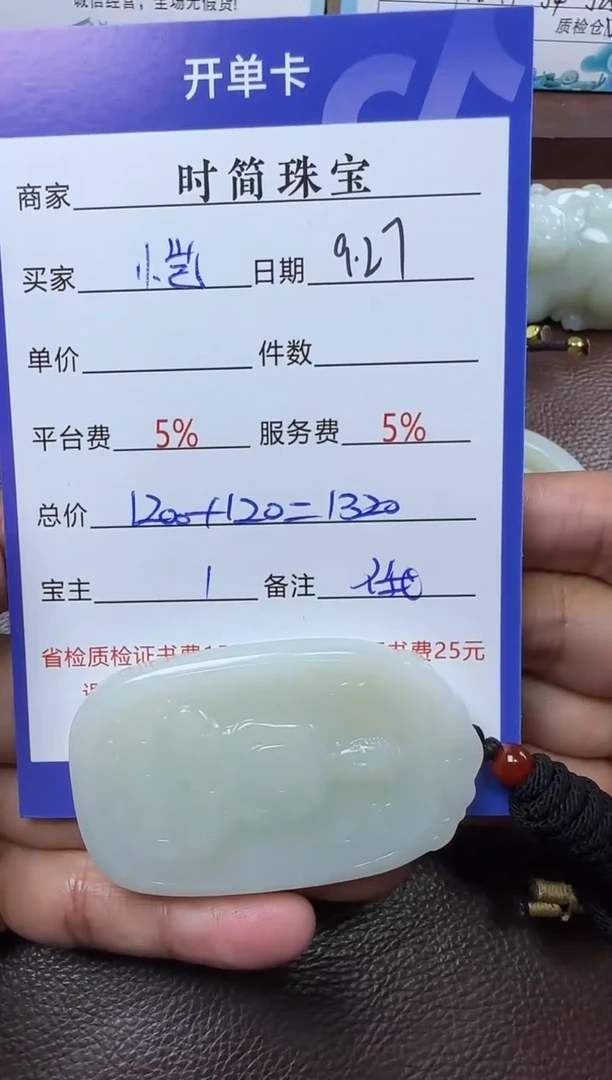 诚信经营，全场无假货!
质检仓
开单卡
商家 时简珠宝
买家 小凯 日期 9.27
单价 件数
平台费 5% 服务费 5%
总价 1200+120=1320
宝主 1 备注
省检质检证书费1 书费25元